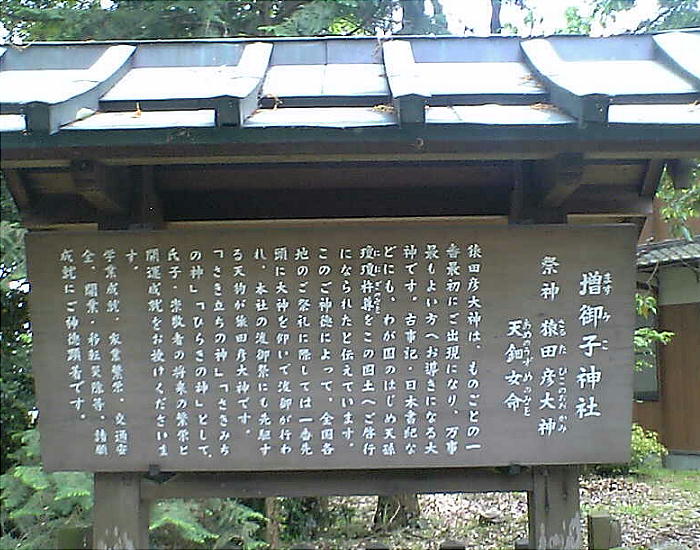 増御子神社
ますみこ
祭神 猿田彦大神
さるたひこのおおかみ
天鈿女命
あめのうずめのみこと
猿田彦大神は、ものごとの一
番最初にご出現になり、万事
最もよい方へお導きになる大
神です。古事記・日本書紀な
どにも、わが国のはじめ天孫
瓊瓊杵尊をこの国土へご啓行
になられたと伝えています。
このご神徳によって、全国各
地のご祭礼に際しては一番先
頭に大神を仰いで渡御が行わ
れ、本社の渡御祭にも先駆す
る天狗が猿田彦大神です。
「さき立ちの神」「さきみち
の神」「ひらきの神」として、
氏子・崇敬者の将来の繁栄と
開運成就をお授けくださいま
す。
学業成就・家業繁栄、交通安
全、開業・移転災除等、諸願
成就にご神徳顕著です。